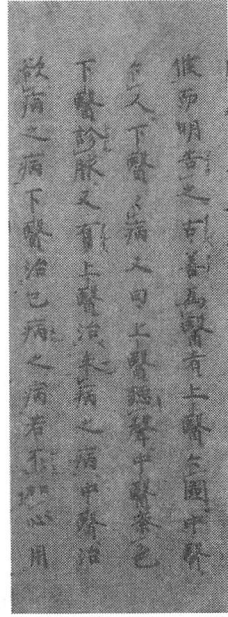 候而明告之古善為醫者上醫々國中醫
々人下醫々病又曰上醫聽聲中醫察色
下醫診脉又上醫治未病之病中醫治
欲病之病下醫治已病之病若不加心用